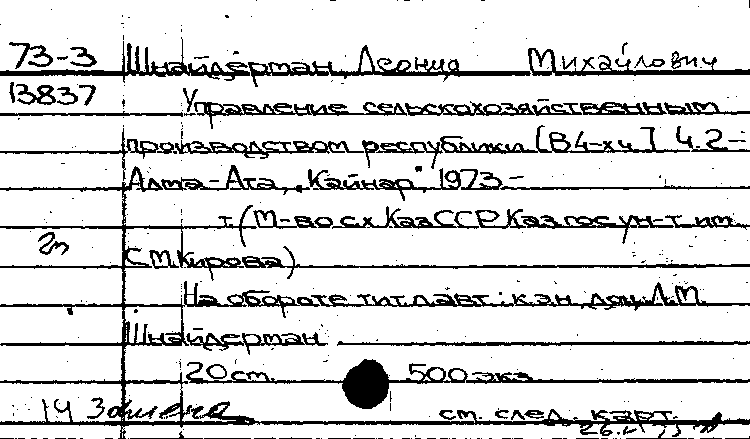 73-3 Шнайдерман, Леонид Михайлович
13837 Управление сельскохозяйственным
производством республики [В 4-х ч.] Ч.2-
Алма-Ата, "Кайнар", 1973.-
т. (М-во с.х. КазССР. Каз. гос. ун-т им.
С.М. Кирова)
На обороте тит. л. авт.: к.э.н. доц. Л.М.
Шнайдерман.
20 см. 500 экз.
14 Замена см. след. карт.